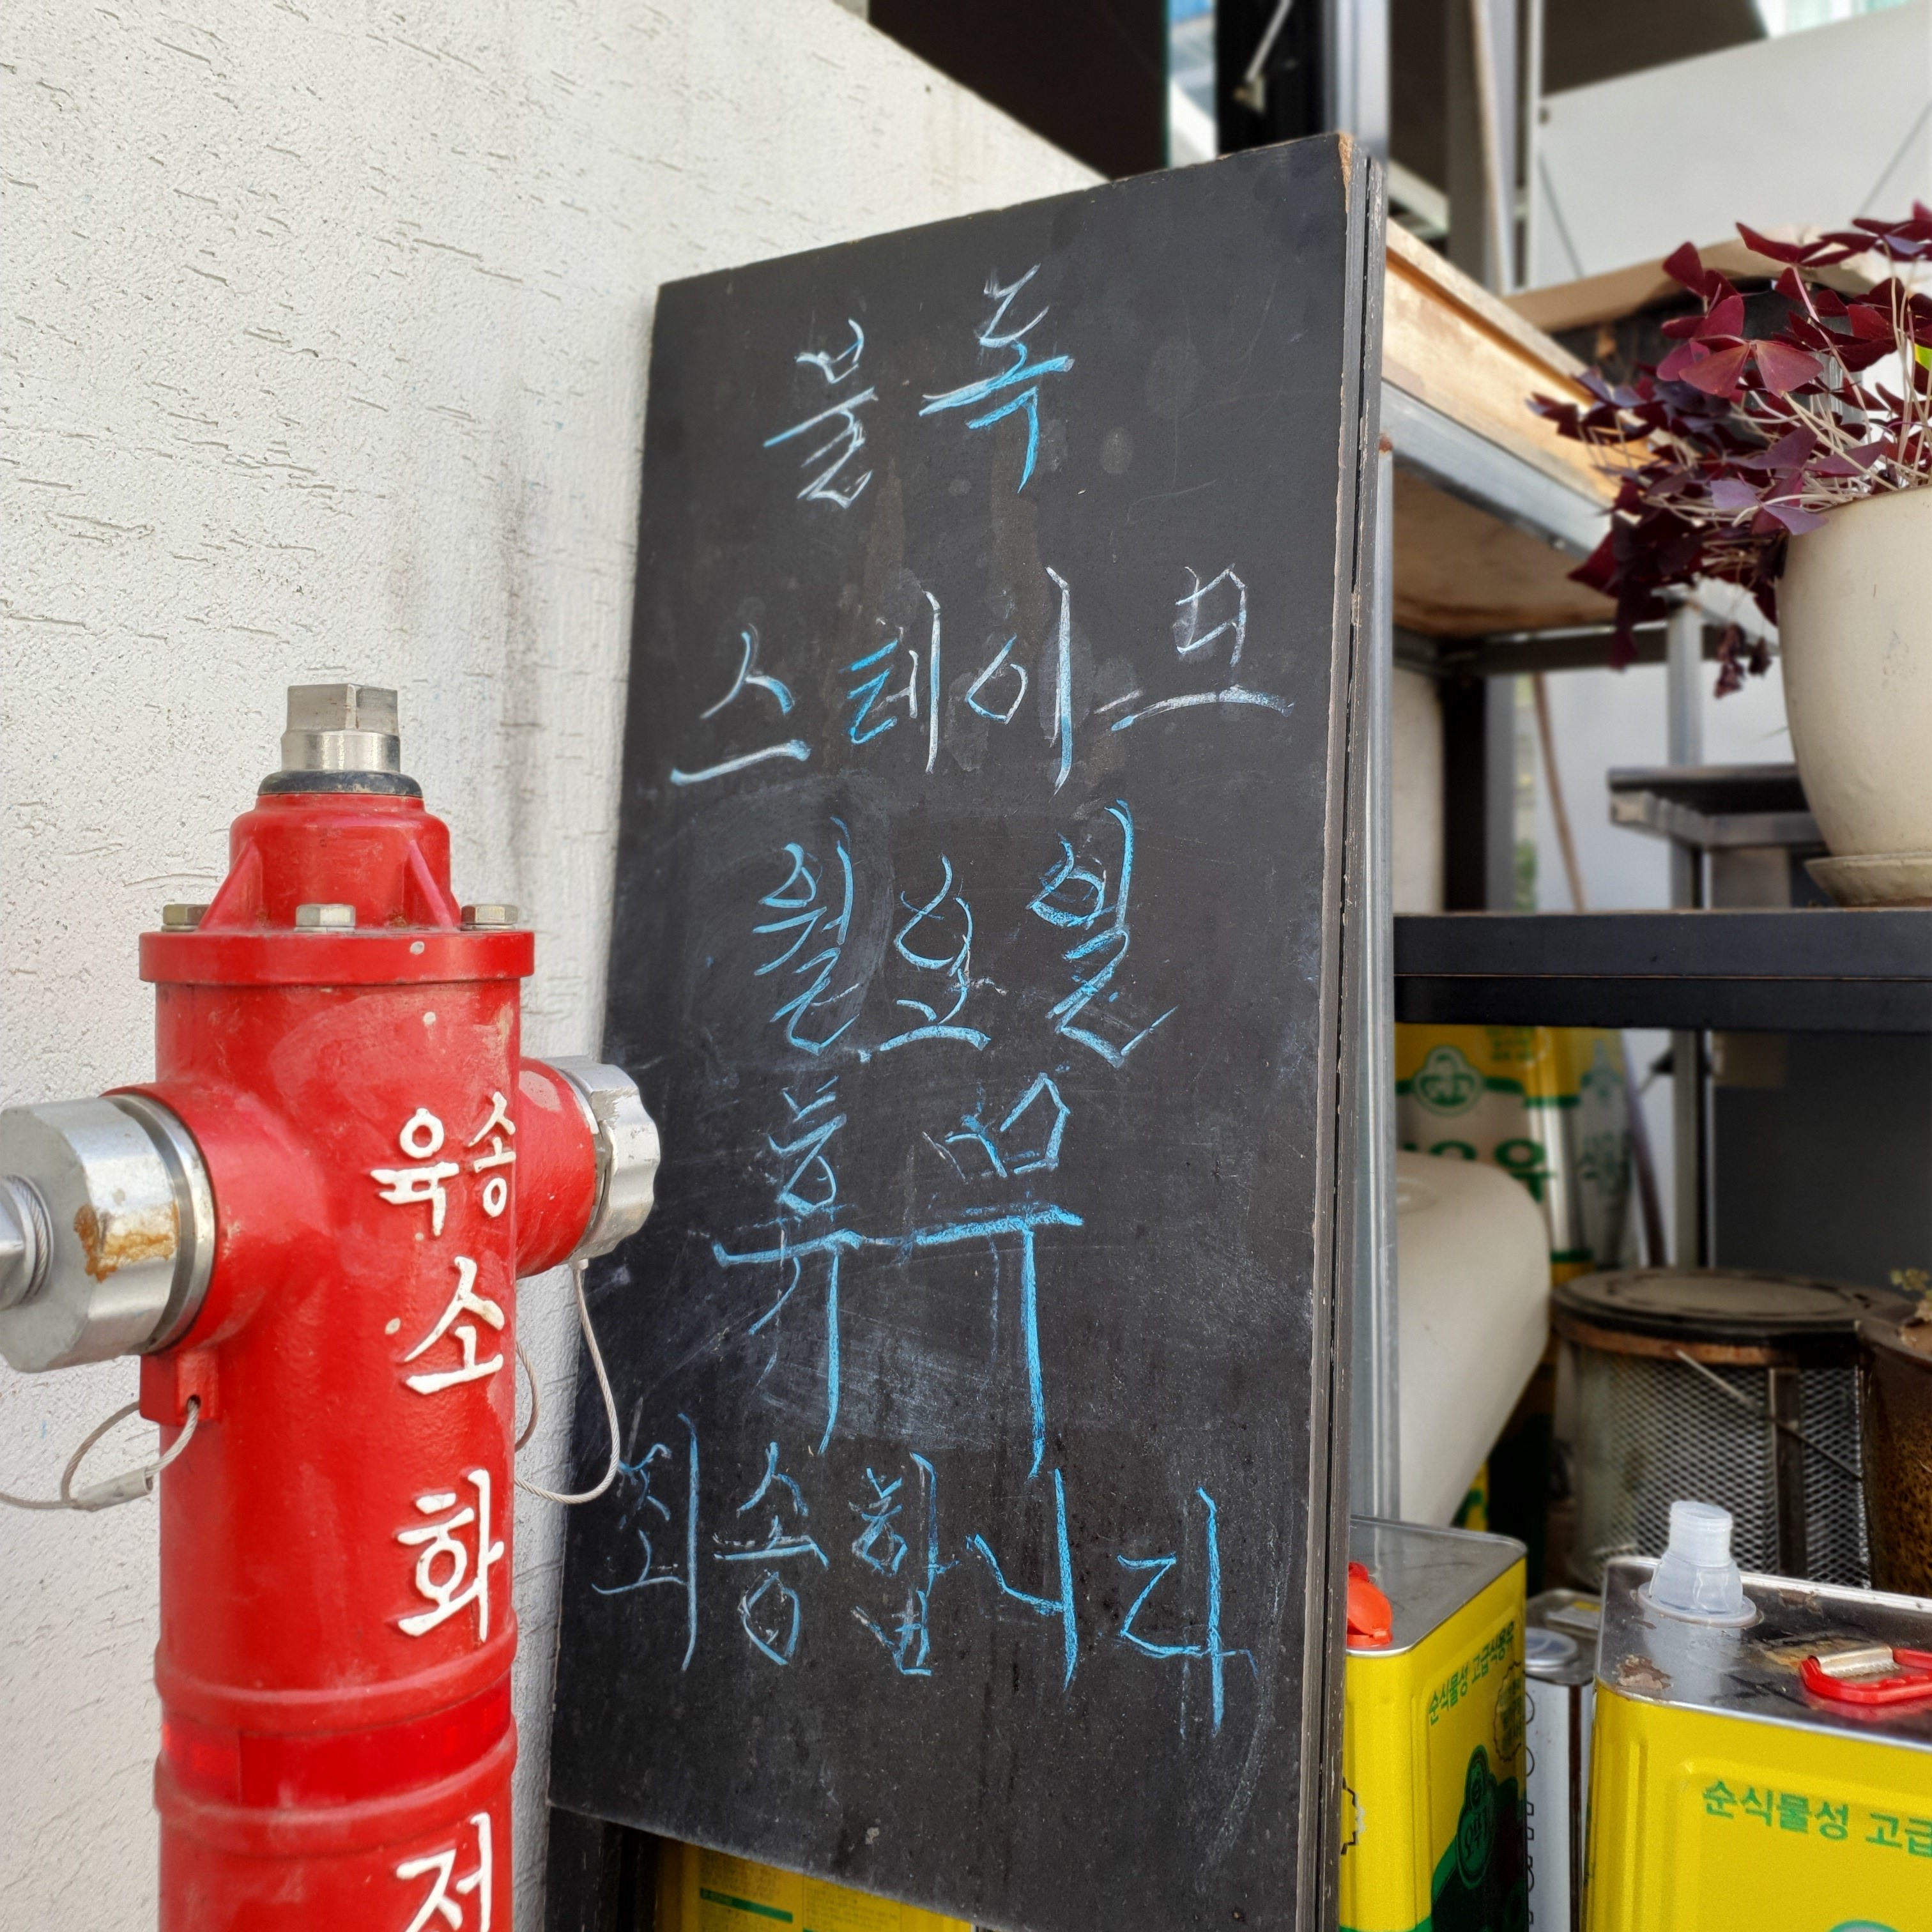 불독
스테이크
월요일
휴무
죄송합니다
육송
소
화
전
순식물성 고급식용유
순식물성 고급